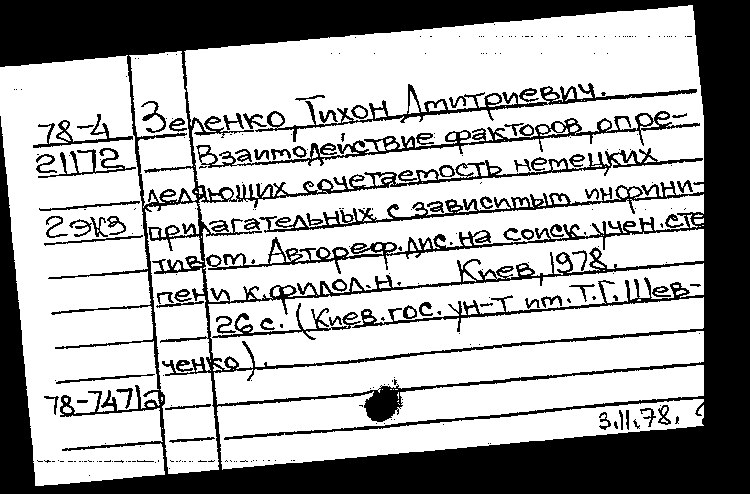 78-4 Зеленко, Тихон Дмитриевич.
21172 Взаимодействие факторов, опре-
деляющих сочетаемость немецких
2экз прилагательных с зависимым инфини-
тивом. Автореф. дис. на соиск. учен. сте
пени к. филол. н. Киев, 1978.
26 с. (Киев. гос. ун-т им. Т. Г. Шев-
ченко).
78-7471а
3.11.78.